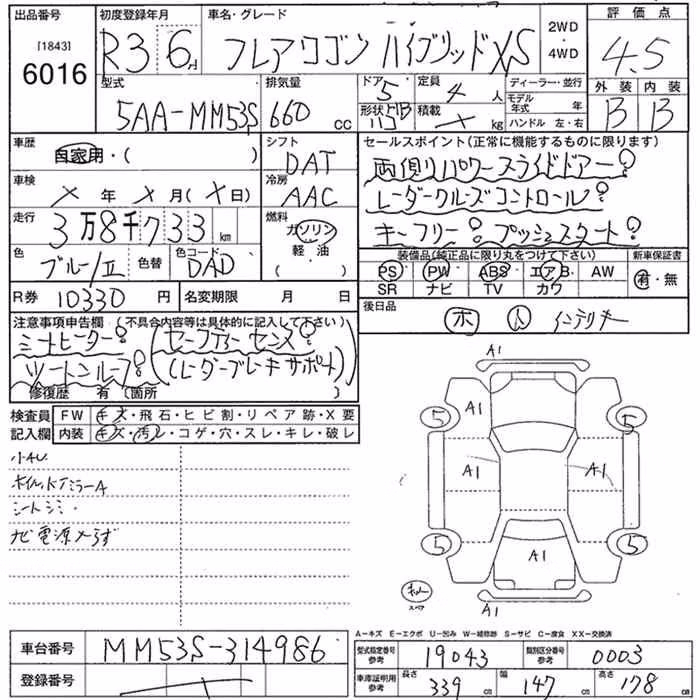 出品番号 初度登録年月 車名・グレード 評価点
[1843] 6016 R3 6月 フレアワゴン ハイブリッドXS 2WD・4WD 4.5
型式 排気量 ドア 5 定員 4人 ディーラー・並行 外装 内装
5AA-MM53S 660cc 形状 積載 ×kg モデル年式 年 B B
ハンドル 左・右
車歴 シフト セールスポイント(正常に機能するものに限ります)
自家用・( ) DAT 両側パワースライドドアー!
車検 冷房 レーダークルーズコントロール!
×年×月(×日) AAC キーフリー! プッシュスタート!
走行 燃料
3万8千733km ガソリン・軽・油( )
色 色替 色コード 装備品(純正品に限り丸をつけて下さい) 新車保証書
ブルー/II DAD PS PW ABS エアB AW 有・無
SR ナビ TV カワ
R券 10330円 名変期限 月 日 後日品
ホ インテリキー
注意事項申告欄(不具合内容等は具体的に記入して下さい)
シートヒーター! (セーフティーセンス!
ツートンルーフ! (レーダーブレーキサポート)
修復歴 有(箇所 )
検査員記入欄 FW キズ・飛石・ヒビ割・リペア跡・X要
内装 キズ・汚レ・コゲ・穴・スレ・キレ・破レ
小AU
ホイル、ドアミラーA
シートシミ
ナビ電源入らず
A1
A1
5 5
A1 A1
5 5
A1
スペア
A1
A-キズ E-エクボ U-凹み W-補修跡 S-サビ C-腐食 XX-交換済
車台番号 MM53S-314986 型式指定番号 参考 19043 類別区分番号 参考 0003
登録番号 車庫証明用 参考 長さ 339cm 幅 147cm 高さ 178cm